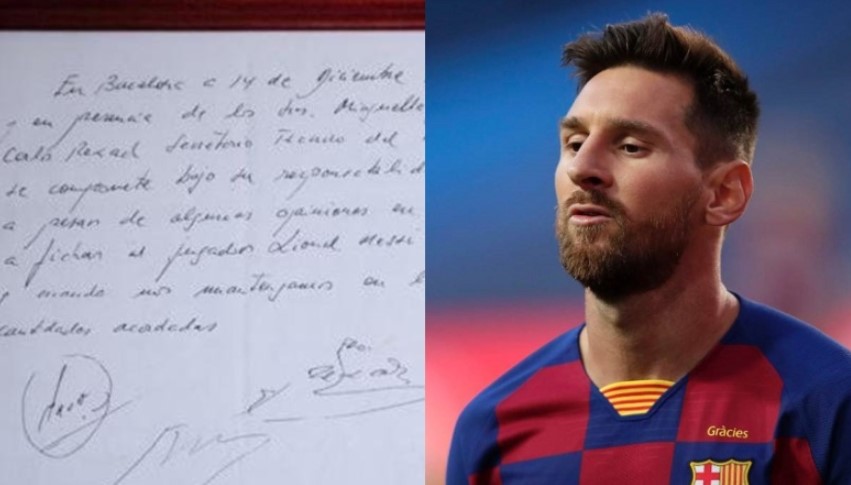 En Barcelona a 14 de Diciembre
y en presencia de los Srs. Minguella
Carlo Rexach Secretario Tecnico del
se compromete bajo su responsabilid
a pesar de algunas opiniones en
a fichar al jugador Lionel Messi
y cuando nos mantengamos en l
cantidades acordadas
Gràcies